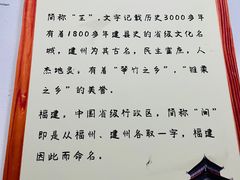 简称“芝”,文字记载历史3000多年
有着1800多年建县史的省级文化名
城,建州为其古名,民生富庶,人
杰地灵,有着“笋竹之乡”,“锥栗
之乡”的美誉。
福建,中国省级行政区,简称“闽”
即是从福州、建州各取一字,福建
因此而命名。